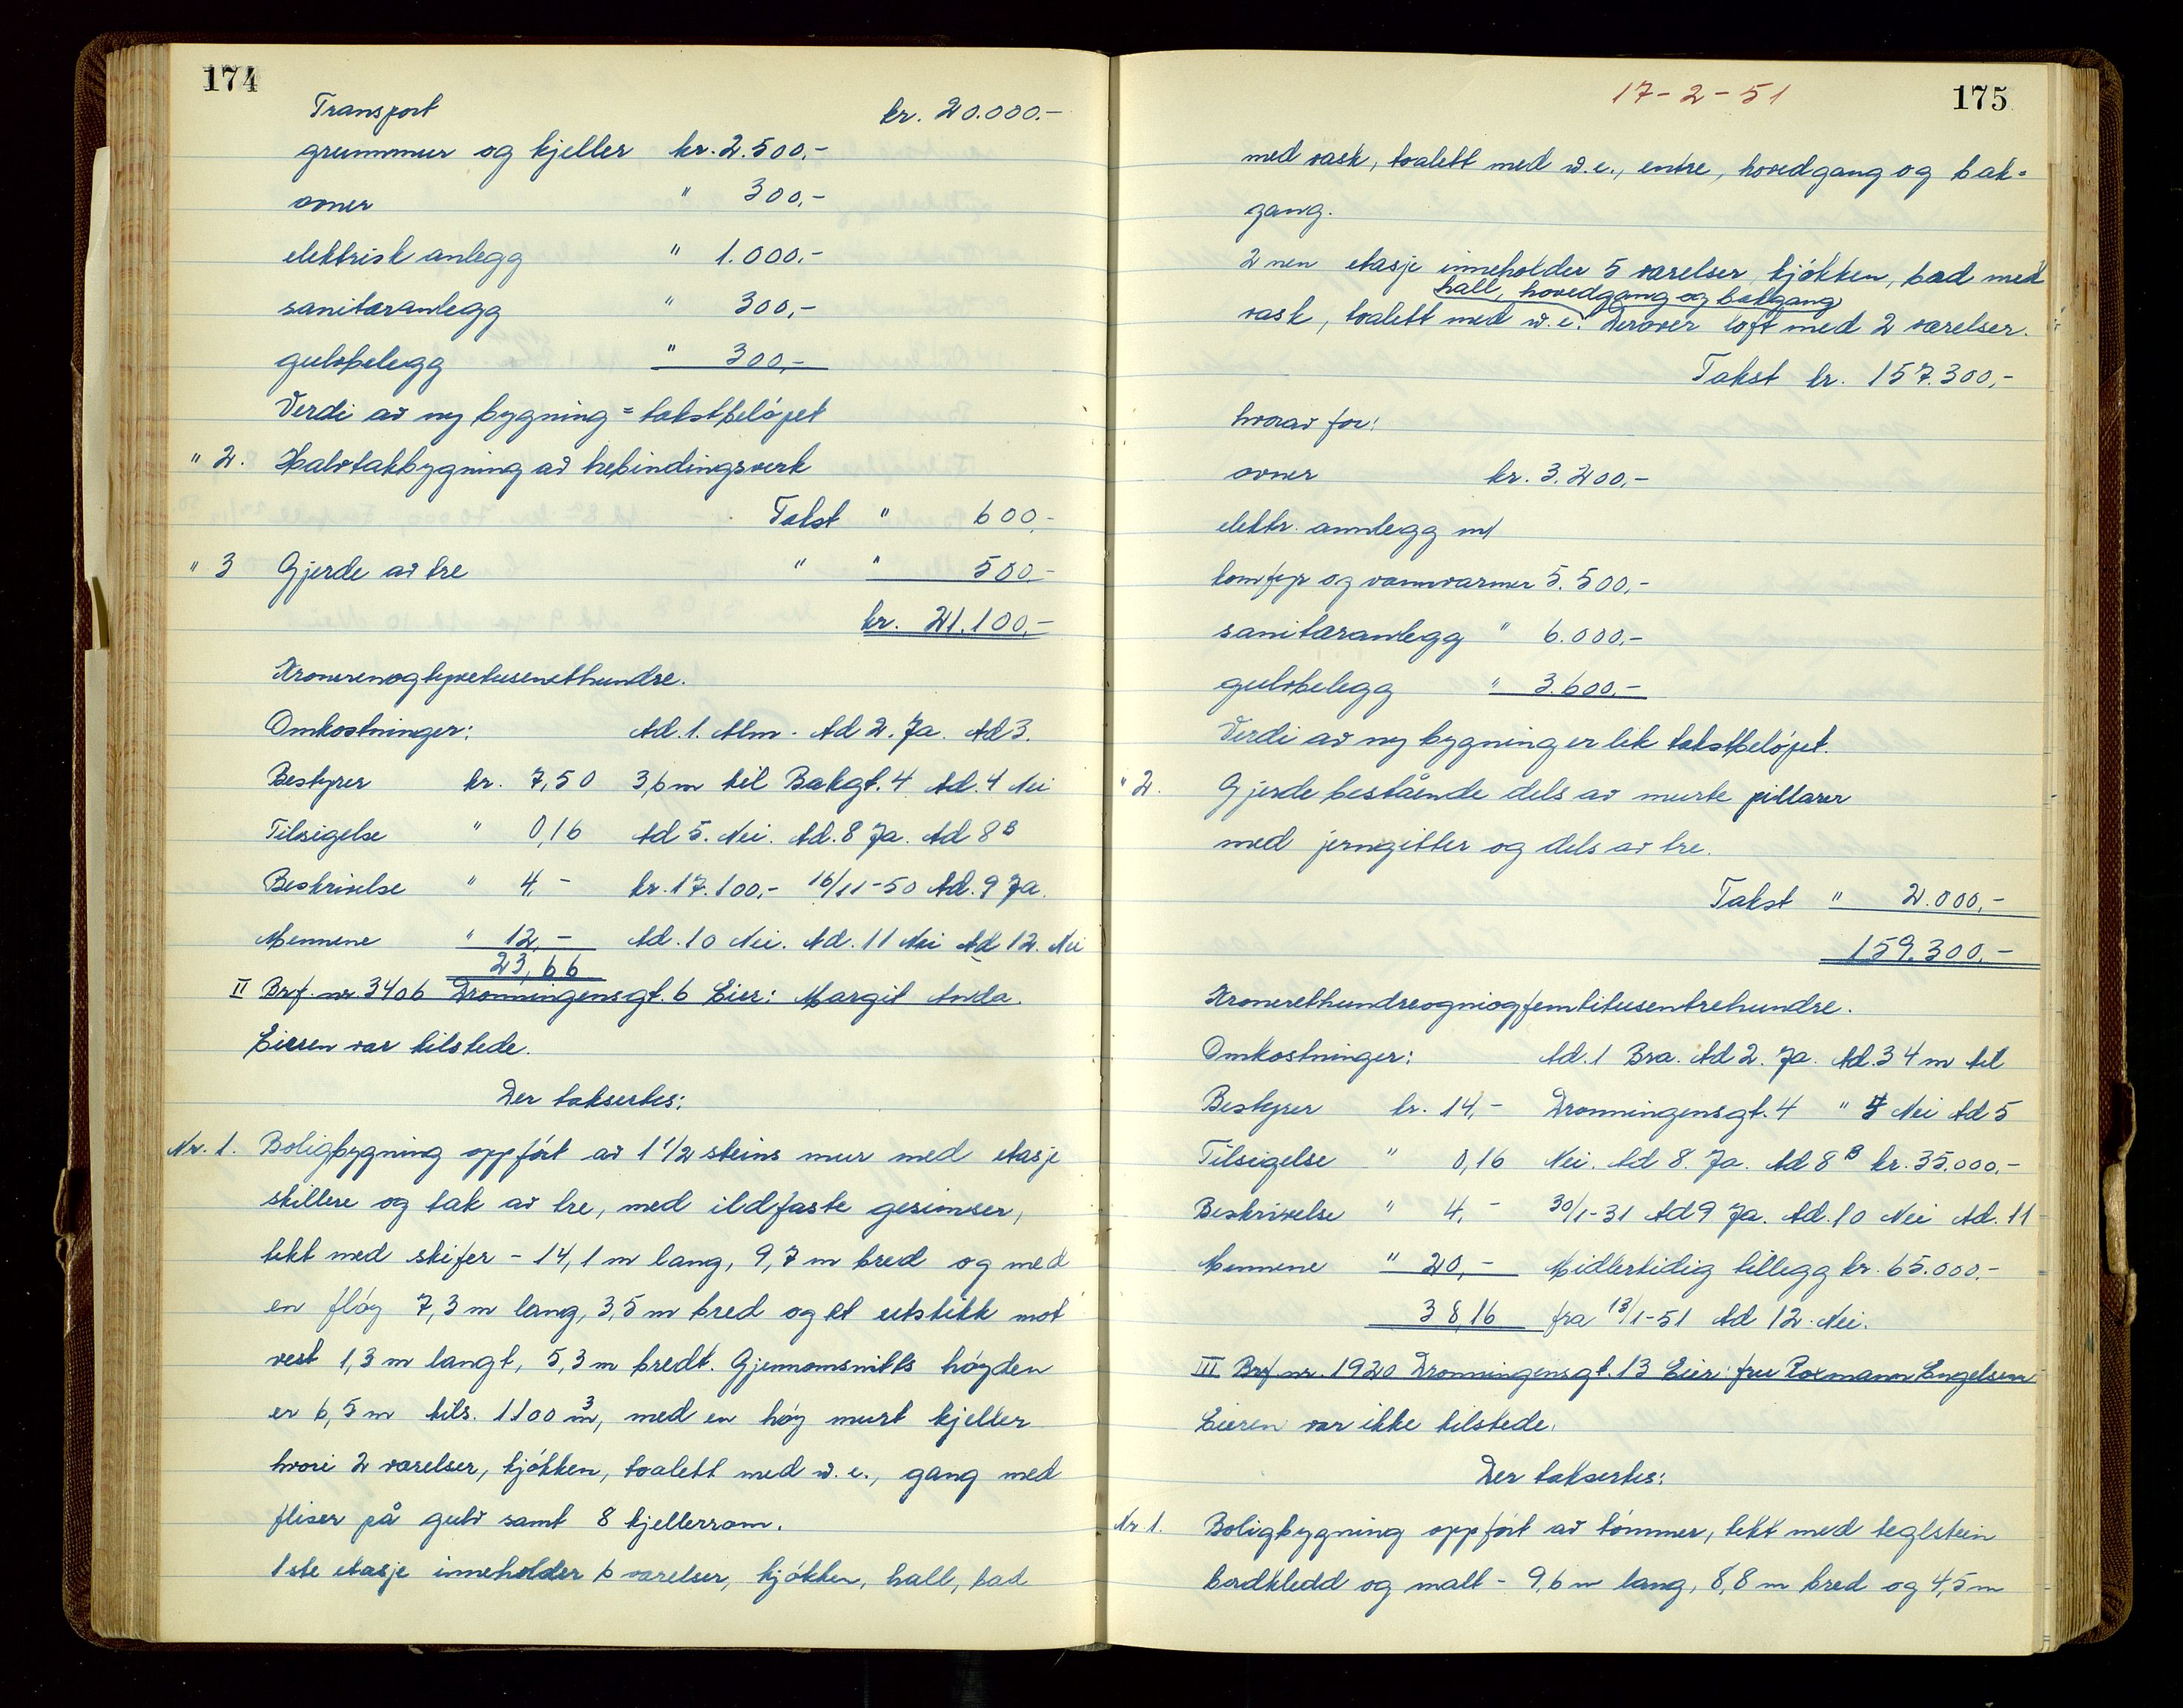 174
Transport kr. 20.000.-
grunnmur og kjeller kr. 2.500,-
ovner " 300,-
elektrisk anlegg " 1.000,-
sanitæranlegg " 300,-
gulvbelegg " 300,-
Verdi av ny bygning = takstbeløpet
" 2. Halvtakbygning av trebindingsverk
Takst " 600,-
" 3 Gjerde av tre " " 500,-
kr. 21.100,-
Kronerenogtyvetusenethundre.
Omkostninger: Ad. 1. Alm. Ad 2. Ja. Ad 3.
Bestyrer kr. 7,50 3,6 m til Bakgt. 4 Ad. 4 Nei
Tilsigelse " 0,16 Ad 5. Nei. Ad. 8 Ja. Ad 8 B
Beskrivelse " 4,- kr. 17.100,- 16/11-50 Ad. 9 Ja.
Mennene " 12,- Ad. 10 Nei. Ad. 11 Nei Ad 12. Nei
23,66
II Brf. nr. 3406 Dronningensgt. 6 Eier: Margit Anda.
Eieren var tilstede.
Der taksertes:
Nr. 1. Boligbygning oppført av 1 1/2 steins mur med etasje
skillere og tak av tre, med ildfaste gesimser,
tekt med skifer - 14,1 m lang, 9,7 m bred og med
en fløy 7,3 m lang, 3,5 m bred og et utstikk mot
vest 1,3 m langt, 5,3 m bredt. Gjennomsnitts høyden
er 6,5 m tils. 1100 m3, med en høy murt kjeller
hvori 2 værelser, kjøkken, toalett med w.c., gang med
fliser på gulv samt 8 kjellerrom.
1ste etasje inneholder 6 værelser, kjøkken, hall, bad
17-2-51
175
med vask, toalett med w.c., entre, hovedgang og bak=
gang.
2nen etasje inneholder 5 værelser, kjøkken, bad med
hall, hovedgang og bakgang
vask, toalett med w.c. Derover loft med 2 værelser.
Takst kr. 157.300,-
hvorav for:
ovner kr. 3.200,-
elektr. annlegg m/
komfyr og vannvarmer 5.500,-
sanitæranlegg " 6.000,-
gulvbelegg " 3.600,-
Verdi av ny bygning er lik takstbeløpet.
" 2. Gjerde bestående dels av murte pillarer
med jerngitter og dels av tre.
Takst " 2.000,-
159.300,-
Kronerethundreogniogfemtitusentrehundre.
Omkostninger: Ad. 1 Bra. Ad 2. Ja. Ad. 3 4 m til
Bestyrer kr. 14,- Dronningensgt. 4 " 4 Nei Ad 5
Tilsigelse " 0,16 Nei. Ad 8. Ja. Ad 8 B kr. 35.000,-
Beskrivelse " 4,- 30/1-31 Ad 9 Ja. Ad. 10 Nei Ad. 11
Mennene " 20,- Midlertidig tillegg kr. 65.000,-
38,16 fra 13/1-51 Ad 12. Nei.
III Brf. nr. 1920 Dronningensgt. 13 Eier: fru Roxmann Engelsen
Eieren var ikke tilstede.
Der taksertes:
Nr 1. Boligbygning oppført av tømmer, tekt med teglstein
bordkledd og malt - 9,6 m lang, 8,8 m bred og 4,5 m